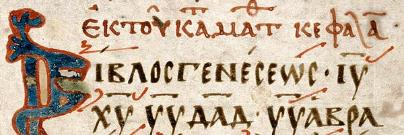 ἘΚΤΟῦΚΑΜΑΤ ΚΕΦΑΛᾹ
ΒΙΒΛΟϹΓΕΝΈϹΕΩϹ · ΙῩ
ΧῩ ΥῩ ΔΑΔ̄ · ΥῩ ΑΒΡΑ